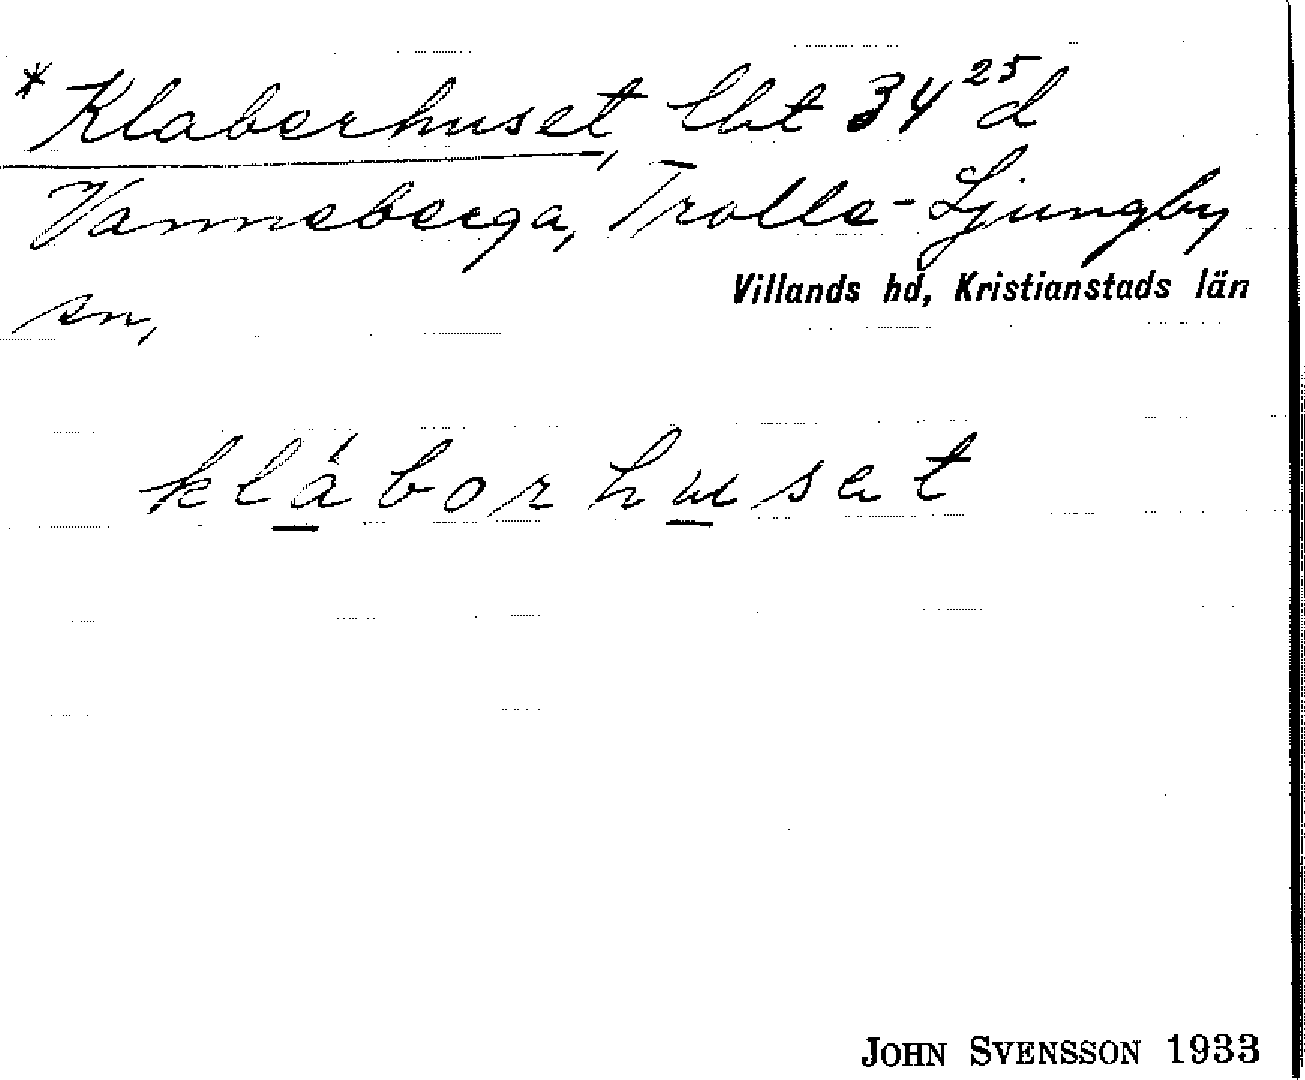 *Klaberhuset, lht 34²⁵d
Vanneberga, Trolle-Ljungby
Villands hd, Kristianstads län
sn,
kláborhuset
JOHN SVENSSON 1933